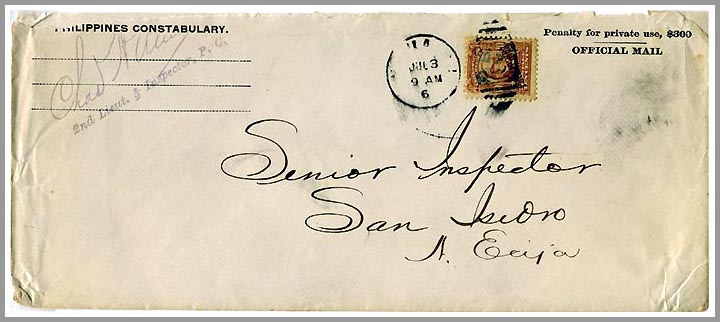 PHILIPPINES CONSTABULARY.
2nd Lieut. & Inspector, P. C.
JUL 3
9 AM
6
Penalty for private use, $300
OFFICIAL MAIL
Senior Inspector
San Isidro
N. Ecija